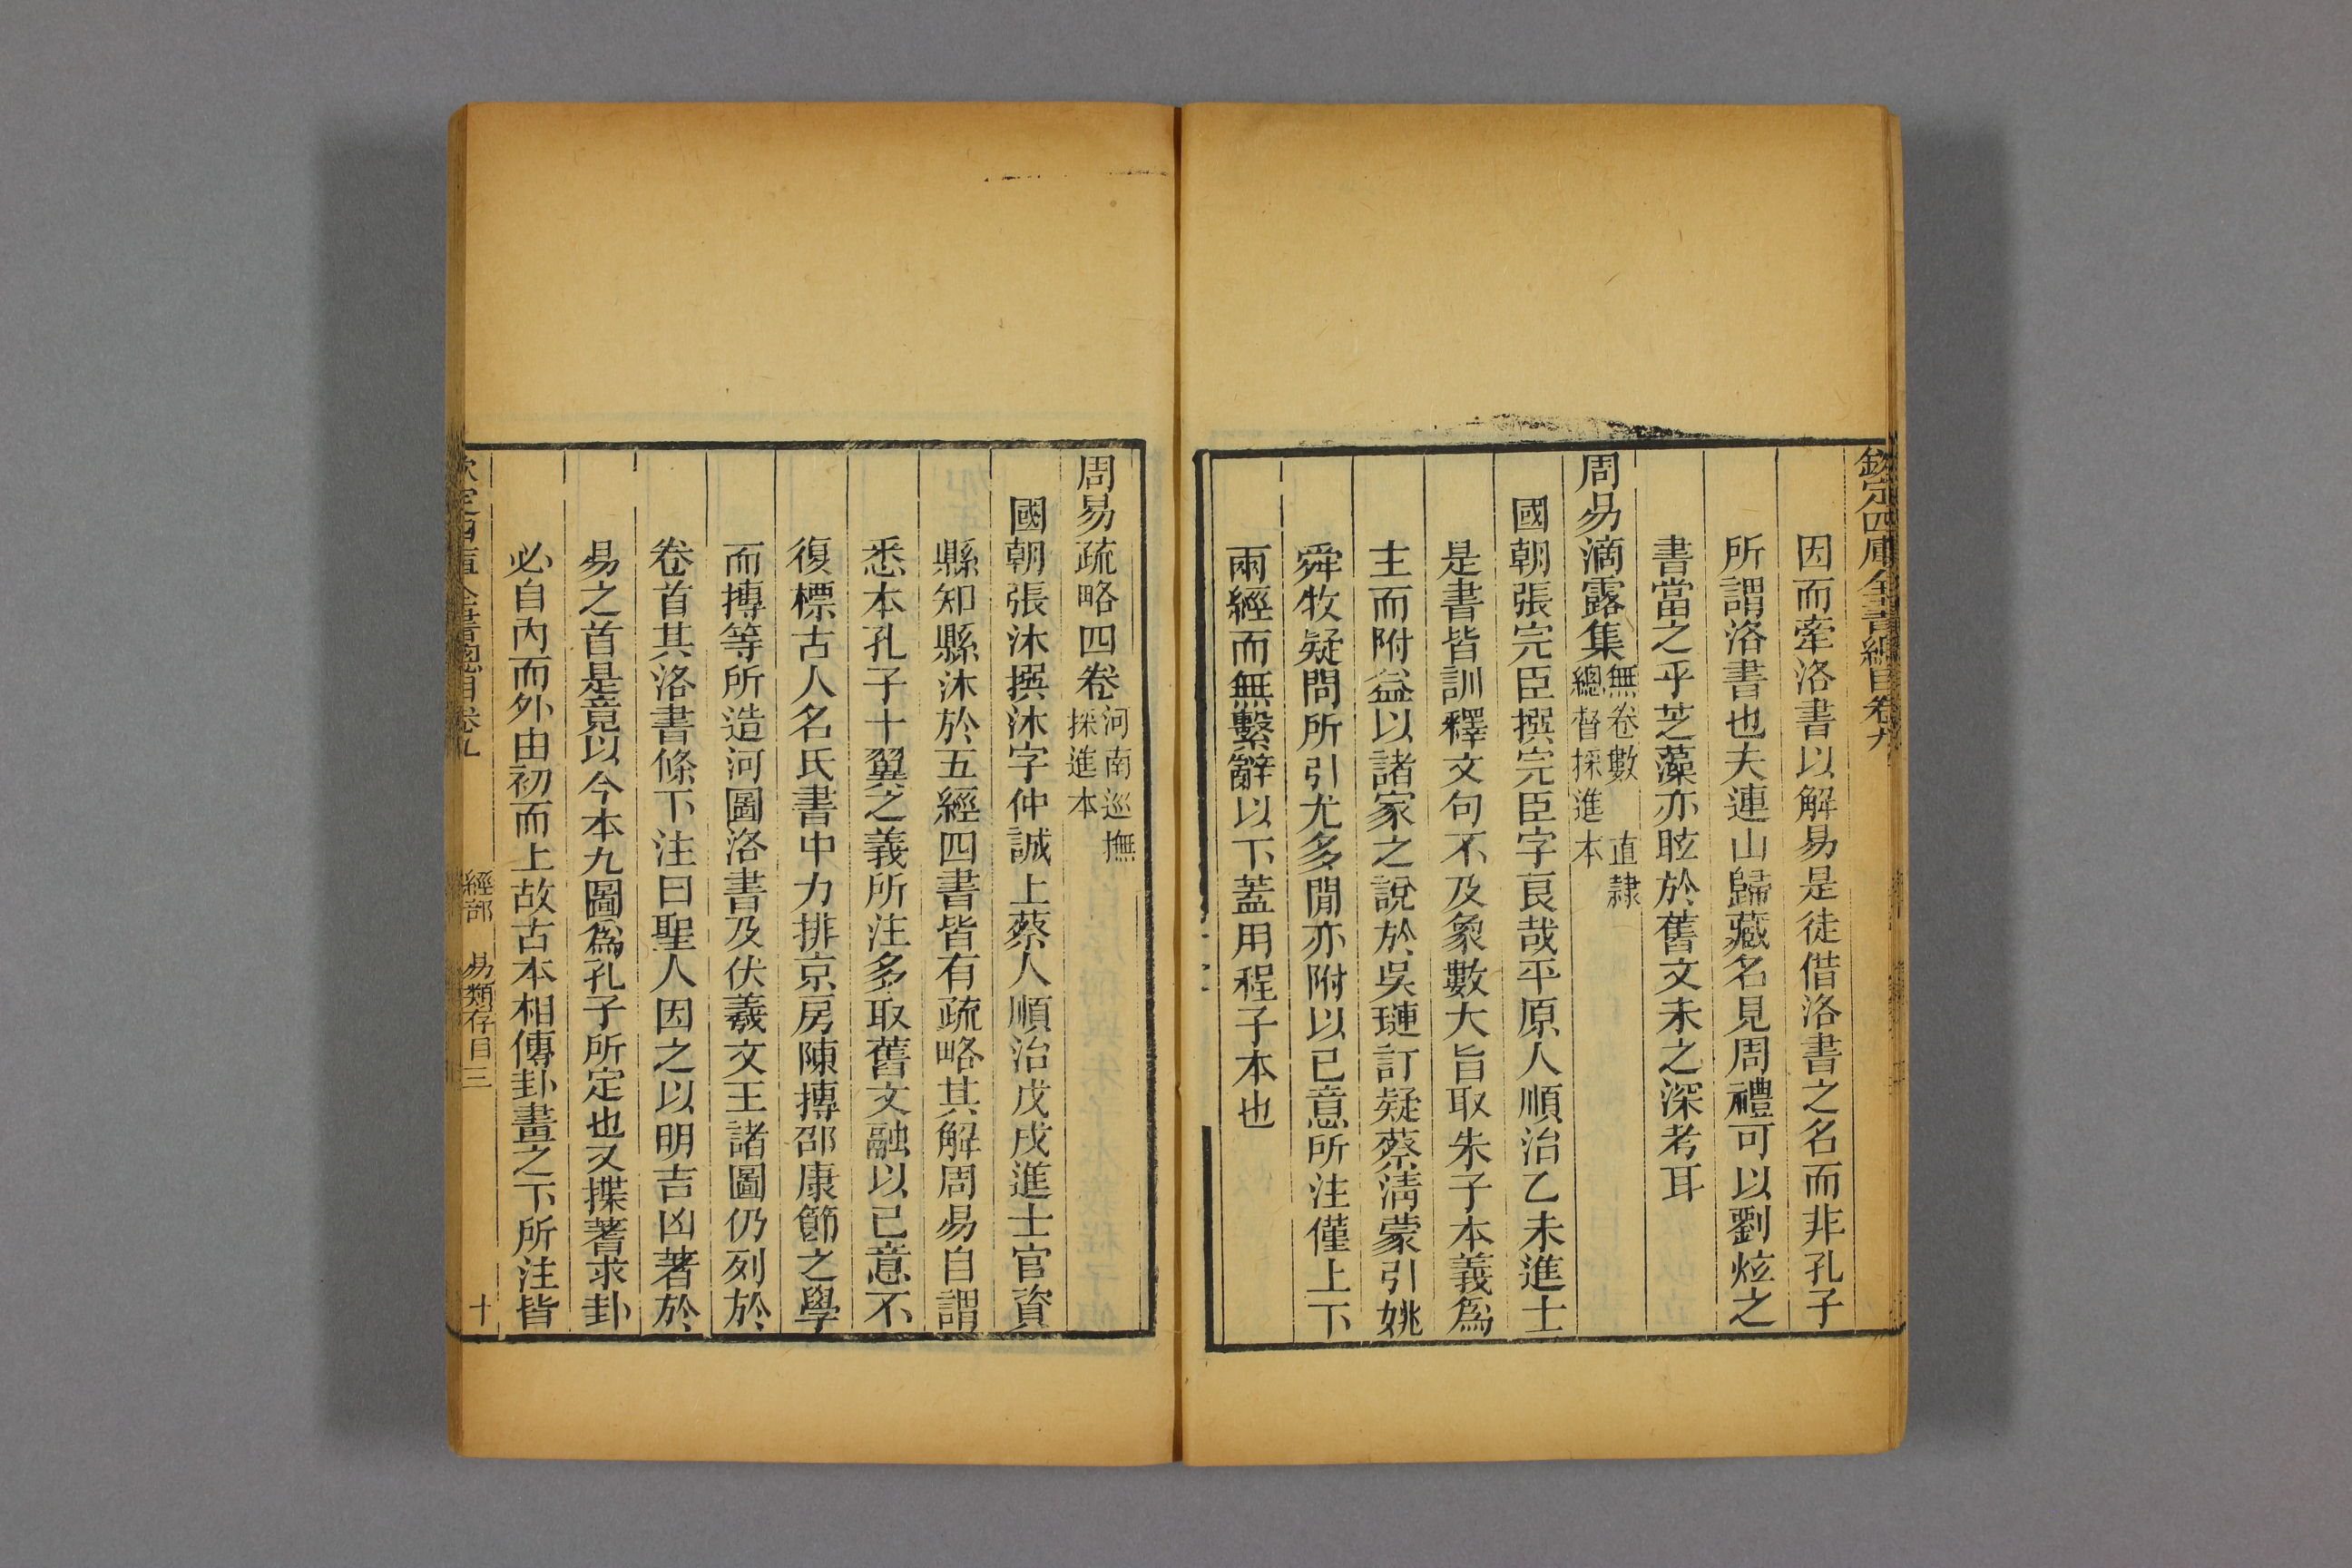 欽定四庫全書總目卷九
因而牽洛書以解易是徒借洛書之名而非孔子
所謂洛書也夫連山歸藏名見周禮可以劉炫之
書當之乎芝藻亦眩於舊文未之深考耳
周易滴露集無卷數 直隸總督採進本
國朝張完臣撰完臣字良哉平原人順治乙未進士
是書皆訓釋文句不及象數大旨取朱子本義爲
主而附益以諸家之說於吳璉訂疑蔡淸蒙引姚
舜牧疑問所引尤多閒亦附以已意所注僅上下
兩經而無繫辭以下蓋用程子本也
周易疏略四卷河南巡撫採進本
國朝張沐撰沐字仲誠上蔡人順治戊戌進士官資
縣知縣沐於五經四書皆有疏略其解周易自謂
悉本孔子十翼之義所注多取舊文融以已意不
復標古人名氏書中力排京房陳摶邵康節之學
而摶等所造河圖洛書及伏羲文王諸圖仍列於
卷首其洛書條下注曰聖人因之以明吉凶著於
易之首是竟以今本九圖爲孔子所定也又揲蓍求卦
必自內而外由初而上故古本相傳卦畫之下所注皆
欽定四庫全書總目卷九 經部 易類存目三 十